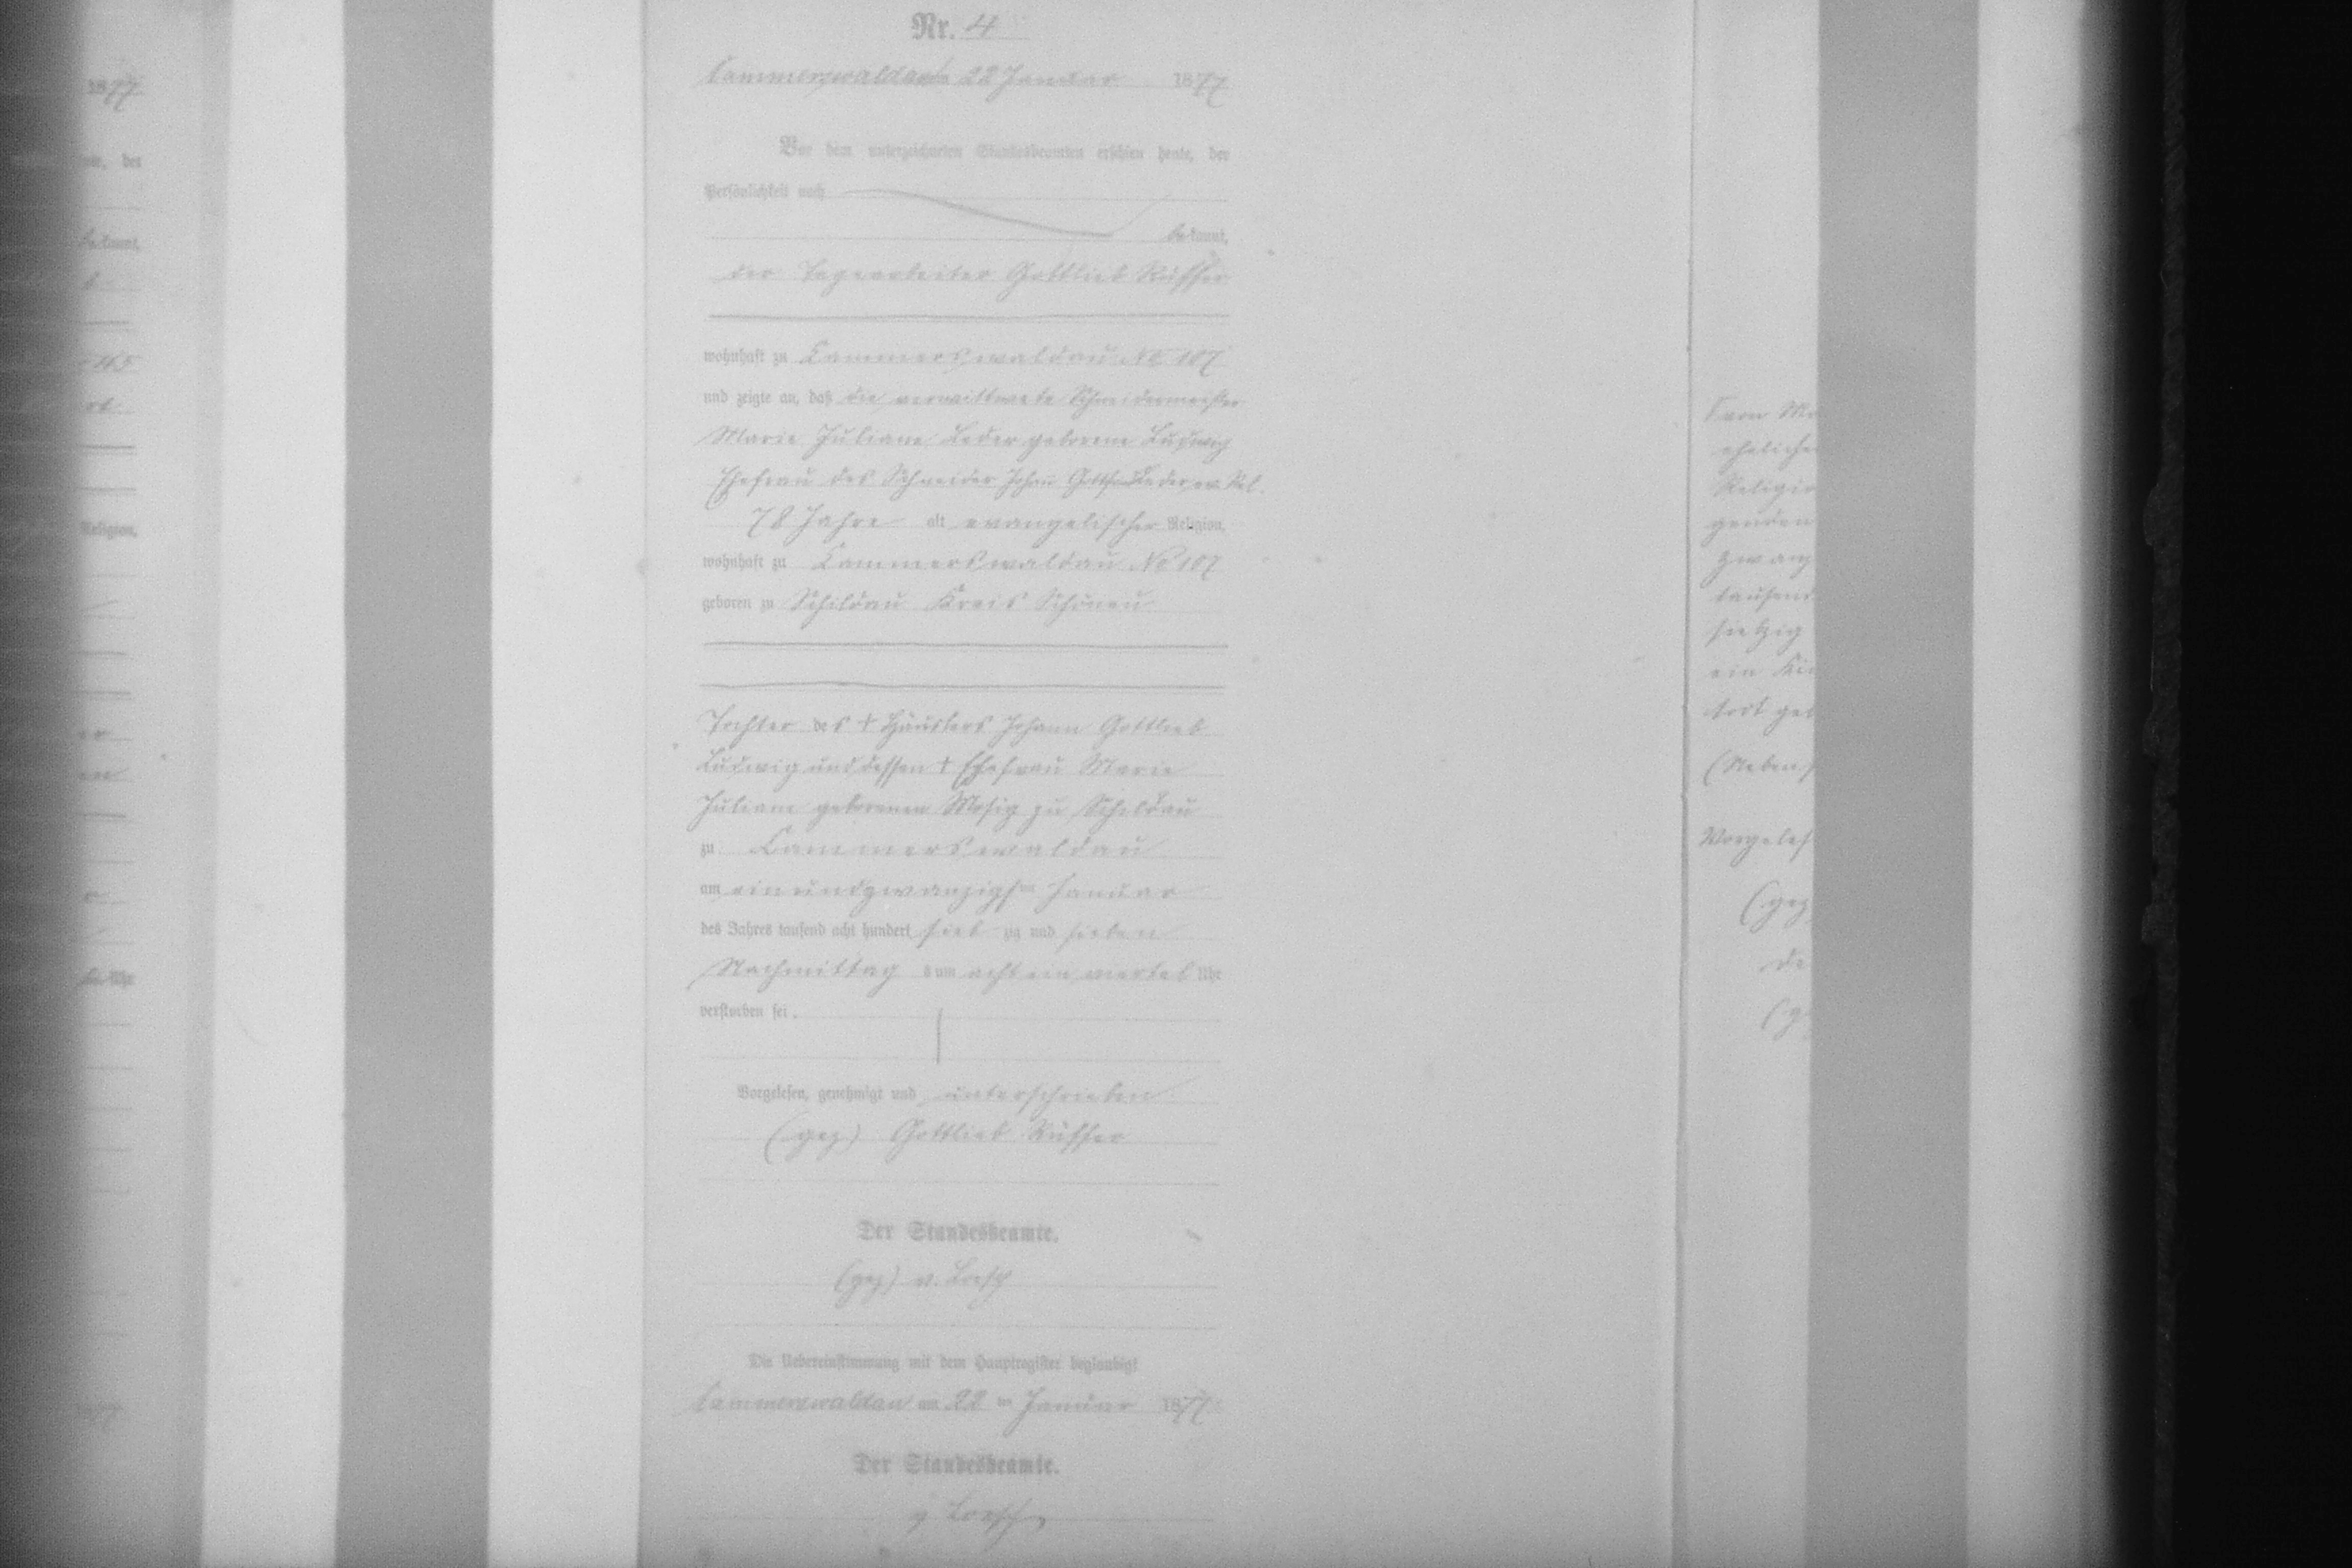 Nr. 4
Cammerswaldau am 22 Januar 1877
Vor dem unterzeichneten Standesbeamten erschien heute, der
Persönlichkeit nach
bekannt,
der Tagearbeiter Gottlieb Küffer
wohnhaft zu Cammerswaldau No 107
und zeigte an, daß die verwittwete Schneidermeister
Marie Juliane Leder geborene Ludwig
Ehefrau des Schneider Johann Gottfried Leder, ev. Rel.
78 Jahre alt evangelischer Religion,
wohnhaft zu Cammerswaldau No 107
geboren zu Schildau Kreis Schönau
Tochter des + Häuslers Johann Gottlieb
Ludwig und dessen + Ehefrau Marie
Juliane geborenen Mosig zu Schildau
zu Cammerswaldau
am einundzwanzigsten Januar
des Jahres tausend acht hundert siebzig und sieben
Nachmittags um acht ein viertel Uhr
verstorben sei.
Vorgelesen, genehmigt und unterschrieben
(gez) Gottlieb Küffer
Der Standesbeamte.
(gez) v. Loesch
Die Uebereinstimmung mit dem Hauptregister beglaubigt
Cammerswaldau am 22 ten Januar 1877
Der Standesbeamte.
v Loesch
1877
bekannt,
Religion,
ehelichen
tausend
ein
(Neben
Vorgeles
(gez